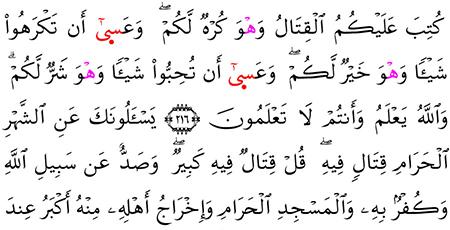 كُتِبَ عَلَيْكُمُ ٱلْقِتَالُ وَهْوَ كُرْهٌ لَّكُمْ ۖ وَعَسِىٰٓ أَن تَكْرَهُوا۟
شَيْـًٔا وَهْوَ خَيْرٌ لَّكُمْ ۖ وَعَسِىٰٓ أَن تُحِبُّوا۟ شَيْـًٔا وَهْوَ شَرٌّ لَّكُمْ ۗ
وَٱللَّهُ يَعْلَمُ وَأَنتُمْ لَا تَعْلَمُونَ ﴿٢١٦﴾ يَسْـَٔلُونَكَ عَنِ ٱلشَّهْرِ
ٱلْحَرَامِ قِتَالٍ فِيهِ ۖ قُلْ قِتَالٌ فِيهِ كَبِيرٌ ۖ وَصَدٌّ عَن سَبِيلِ ٱللَّهِ
وَكُفْرٌۢ بِهِۦ وَٱلْمَسْجِدِ ٱلْحَرَامِ وَإِخْرَاجُ أَهْلِهِۦ مِنْهُ أَكْبَرُ عِندَ